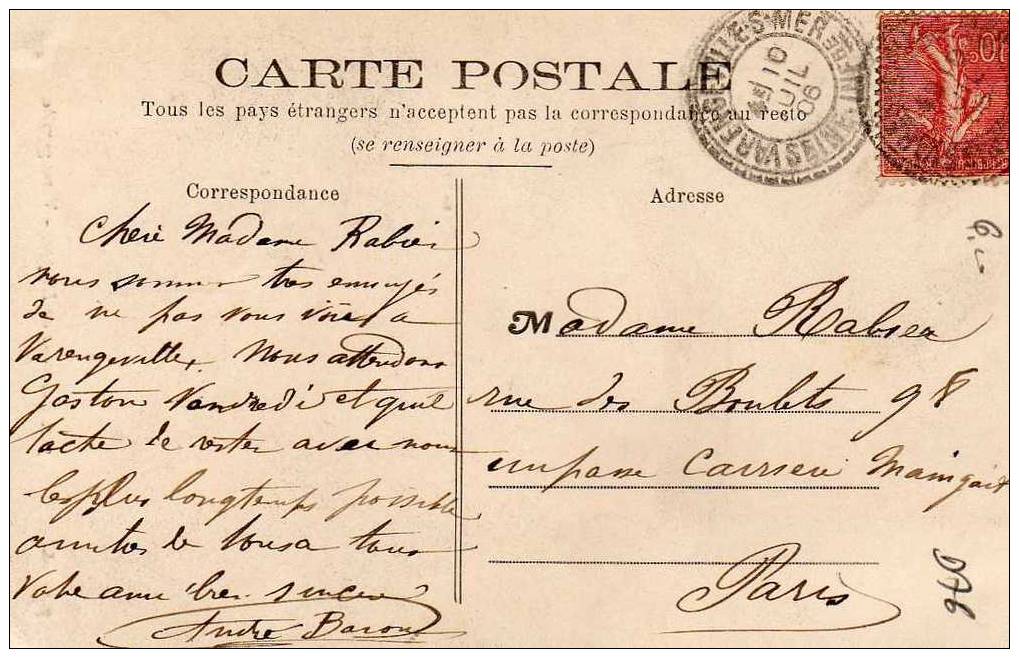 CARTE POSTALE
Tous les pays étrangers n'acceptent pas la correspondance au recto
(se renseigner à la poste)
Correspondance
Chère Madame Rabier
nous sommes tres ennuyés
de ne pas vous voire a
Varengeville. Nous attendons
Gaston Vandredi et qu'il
tâche de rester avec nous
les plus longtemps possible
amitiés de tous a tous
Votre ami bien sincère
André Baron
Adresse
Madame Rabier
rue des Boulets 98
impasse Carriere
Paris
VARENGEVILLE-S-MER
10
JUIL
06
10c
D76